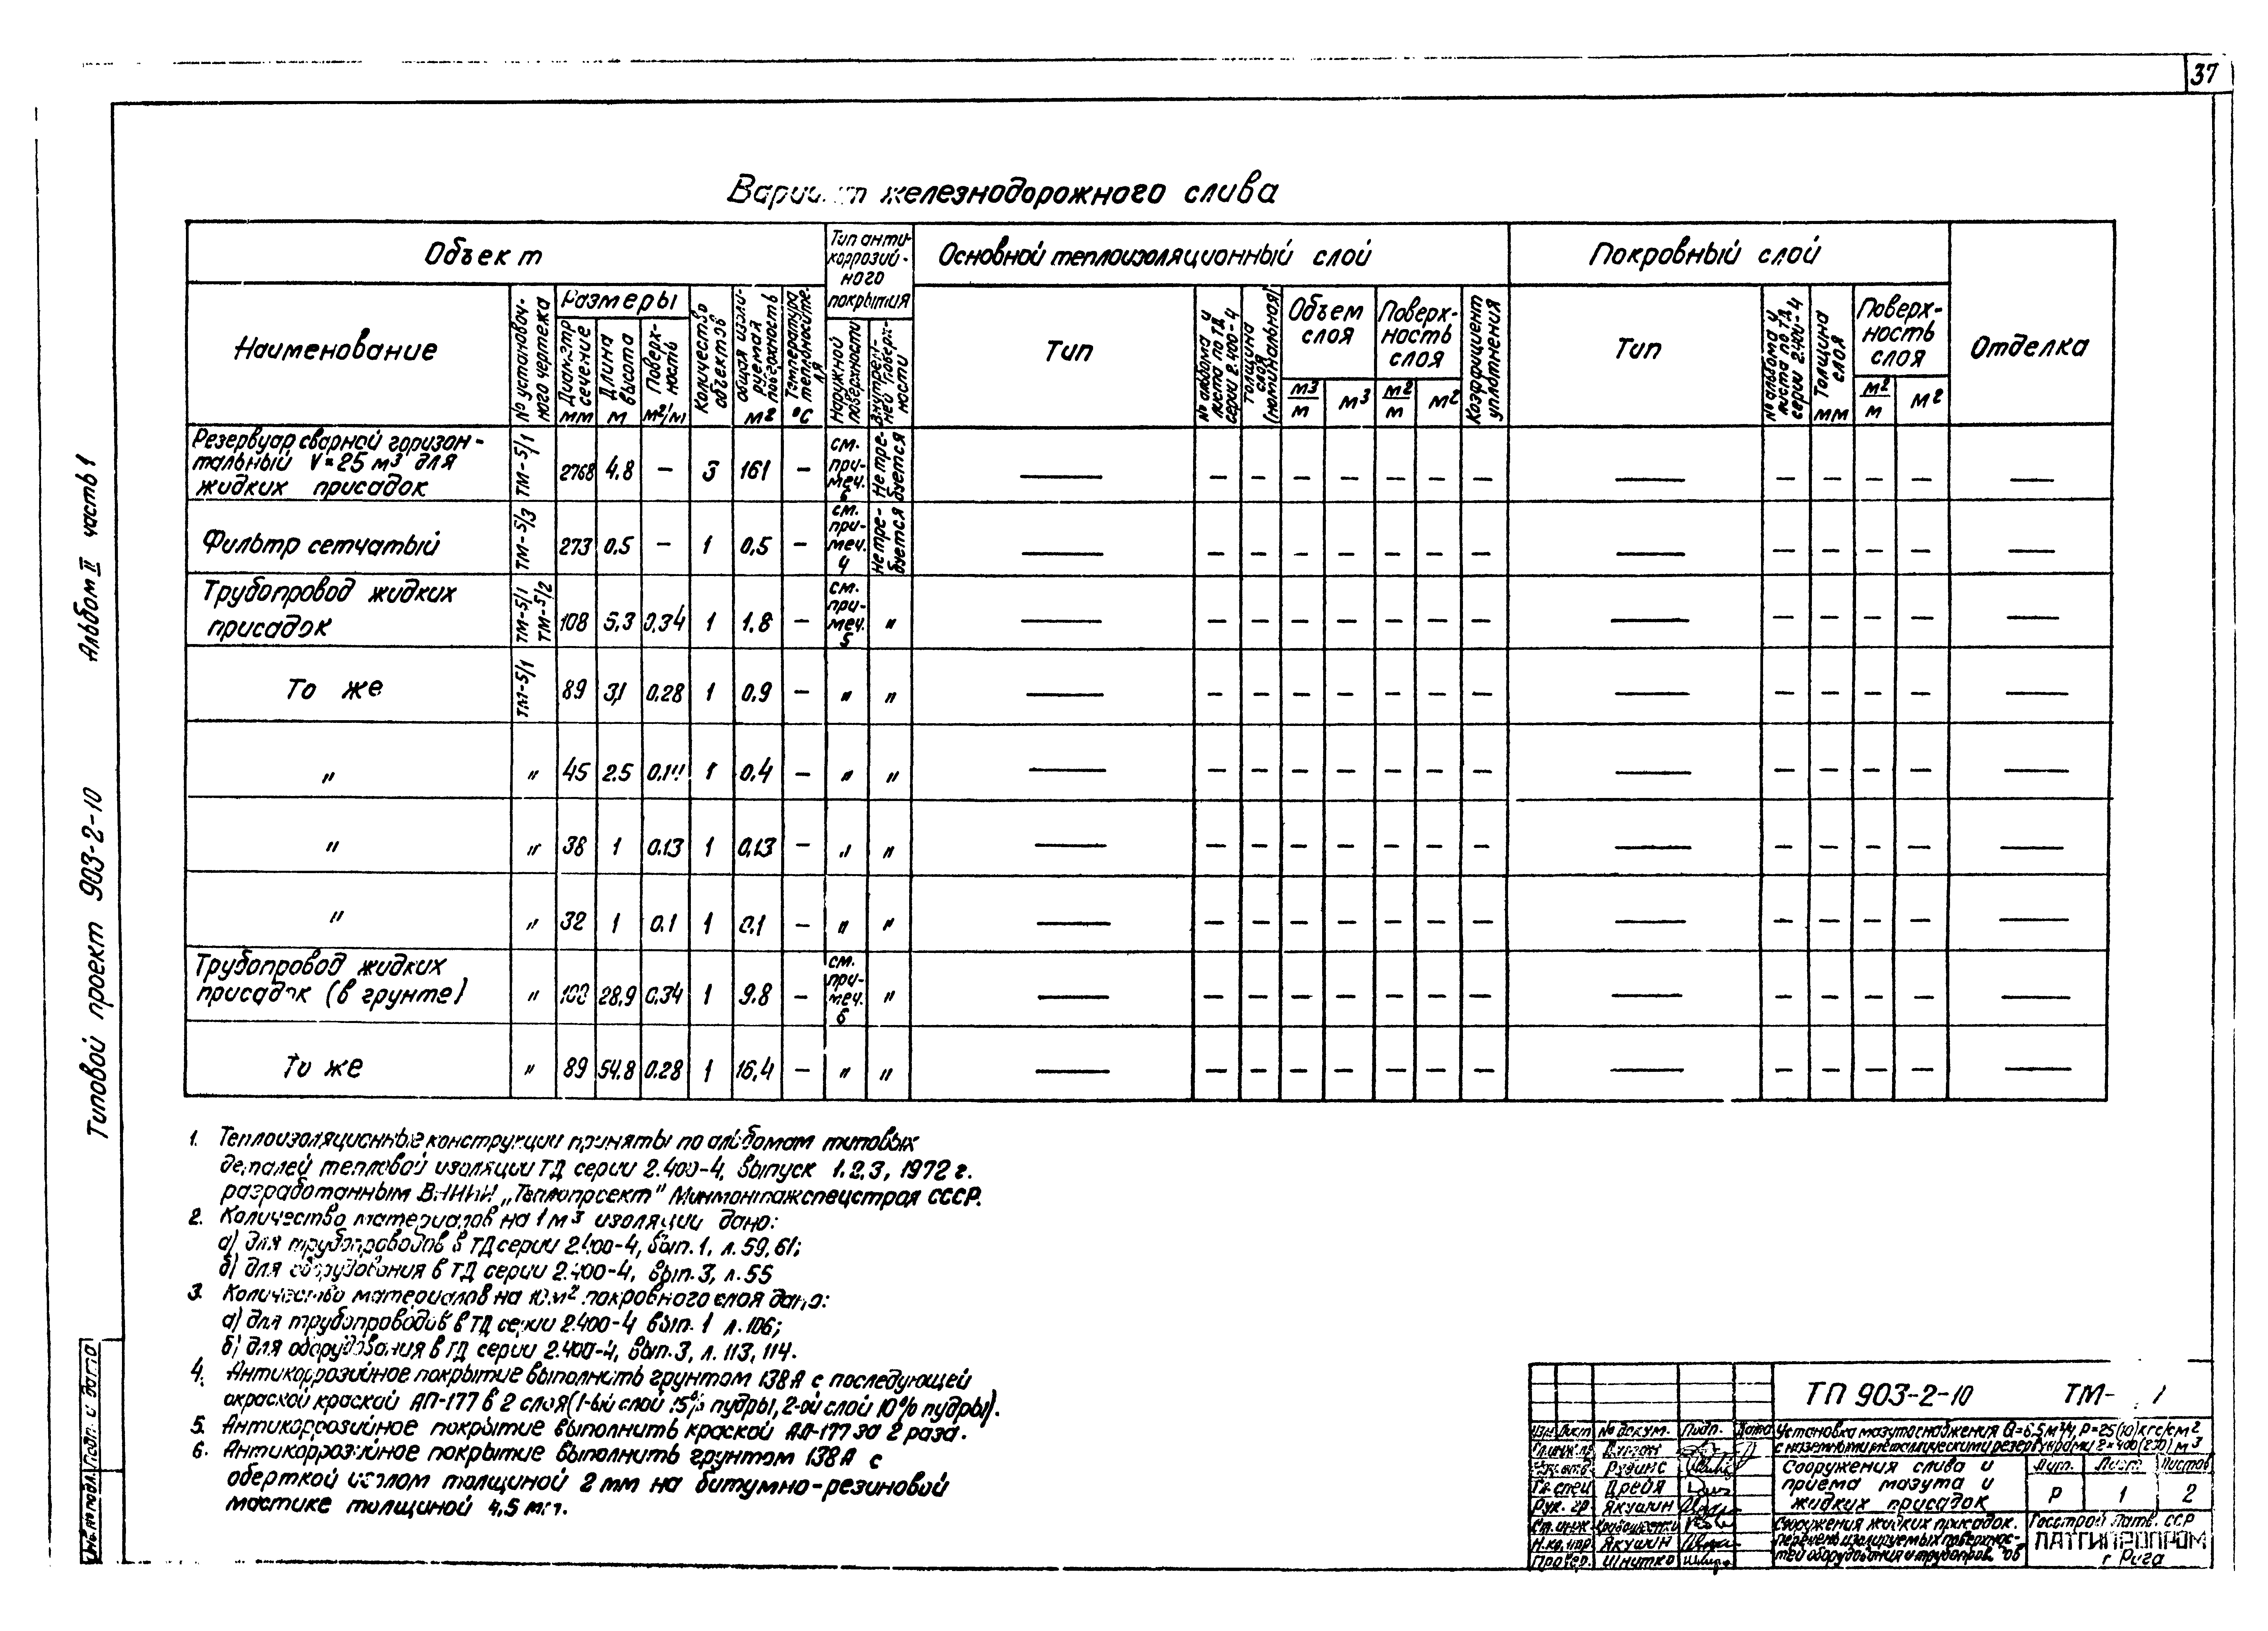 37
Вариант железнодорожного слива
Объект
Тип анти-
коррозий-
ного
покрытия
Основной теплоизоляционный слой
Покровный слой
Отделка
Наименование
№ установоч-
ного чертежа
Размеры
Диаметр
сечение
мм
Длина
высота
м
Поверх-
ность
м²/м
Количество
объектов
Общая изоли-
руемая
поверхность
м²
Температура
теплоносите-
ля
°С
Наружной
поверхности
Внутрен-
ней поверх-
ности
Тип
№ альбома и
листа по ТД
серии 2.400-4
Толщина
слоя
(номинальная)
Объем
слоя
м³/м
м³
Поверх-
ность
слоя
м²/м
м²
Коэффициент
уплотнения
Тип
№ альбома и
листа по ТД
серии 2.400-4
Толщина
слоя
мм
Поверх-
ность
слоя
м²/м
м²
Резервуар сварной горизон-
тальный V=25 м³ для
жидких присадок
ТМ-5/1 2768 4,8 — 3 161 — см. при-меч. 6 Не тре-буется — — — — — — — — — — — — — —
Фильтр сетчатый ТМ-5/3 273 0.5 — 1 0,5 — см. при-меч. 4 Не тре-буется — — — — — — — — — — — — — —
Трубопровод жидких
присадок
ТМ-5/1 ТМ-5/2 108 5,3 0,34 1 1,8 — см. при-меч. 5 " — — — — — — — — — — — — — —
То же ТМ-5/1 89 3,1 0.28 1 0.9 — " " — — — — — — — — — — — — — —
" " 45 2.5 0.14 1 0.4 — " " — — — — — — — — — — — — — —
" " 38 1 0.13 1 0,13 — " " — — — — — — — — — — — — — —
" " 32 1 0.1 1 0.1 — " " — — — — — — — — — — — — — —
Трубопровод жидких
присадок (в грунте)
" 108 28,9 0.34 1 9.8 — см. при-меч. 6 " — — — — — — — — — — — — — —
То же " 89 54.8 0.28 1 16,4 — " " — — — — — — — — — — — — — —
1. Теплоизоляционные конструкции приняты по альбомам типовых
деталей тепловой изоляции ТД серии 2.400-4, выпуск 1.2.3, 1972 г.
разработанным ВНИПИ „Теплопроект" Минмонтажспецстроя СССР.
2. Количество материалов на 1 м³ изоляции дано:
а) для трубопроводов в ТД серии 2.400-4, вып. 1, л. 59, 61;
б) для оборудования в ТД серии 2.400-4, вып. 3, л. 55
3. Количество материалов на 10 м² покровного слоя дано:
а) для трубопроводов в ТД серии 2.400-4 вып. 1 л. 106;
б) для оборудования в ТД серии 2.400-4, вып. 3, л. 113, 114.
4. Антикоррозийное покрытие выполнить грунтом 138А с последующей
окраской краской АП-177 в 2 слоя (1-ый слой 15% пудры, 2-ой слой 10% пудры).
5. Антикоррозийное покрытие выполнить краской АП-177 за 2 раза.
6. Антикоррозийное покрытие выполнить грунтом 138А с
оберткой изолом толщиной 2 мм на битумно-резиновой
мастике толщиной 4,5 мм.
Альбом II часть 1
Типовой проект 903-2-10
Инв. № подл. Подп. и дата
ТП 903-2-10 ТМ- 1
Изм Лист № докум. Подп. Дата
Установка мазутоснабжения Q=6,5 м³/ч, Р=25(10) кгс/см²
с наземными металлическими резервуарами 2×400(200) м³
Гл. инж. пр.
Рудинс
Гл. спец Дрейя
Рук. гр Якушин
Ст. инж
Н. контр Якушин
Провер. Шнитко
Сооружения слива и
приема мазута и
жидких присадок
Лит. Лист Листов
Р 1 2
Сооружения жидких присадок.
Перечень изолируемых поверхнос-
тей оборудования и трубопров-дов
Госстрой Латв. ССР
ЛАТГИПРОПРОМ
г Рига